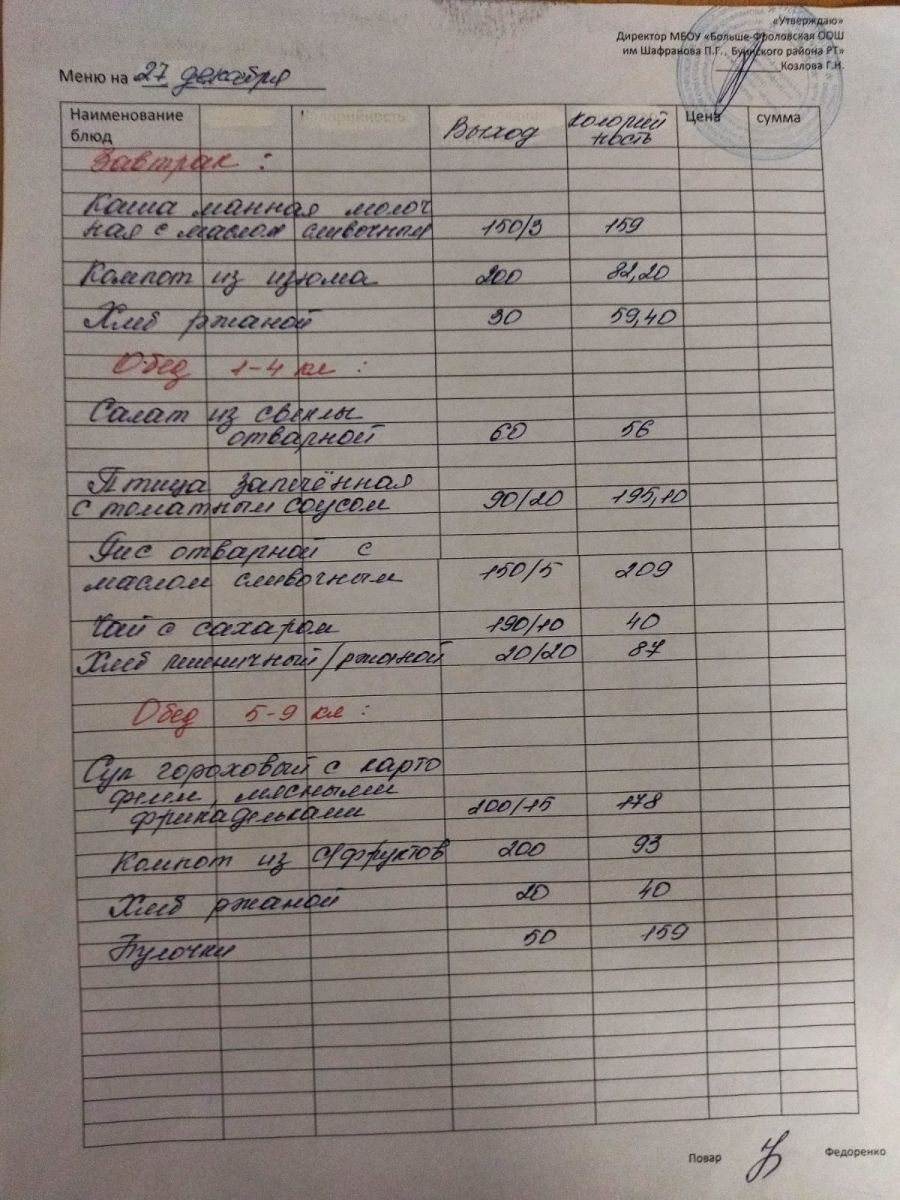 «Утверждаю»
Директор МБОУ «Больше-Фроловская ООШ
им Шафранова П.Г., Буинского района РТ»
Козлова Г.Н.
Меню на 27 декабря
Наименование блюд Выход Колорийность Цена сумма
Завтрак :
Каша манная молоч
ная с маслом сливочным 150/3 159
Компот из изюма 200 82,20
Хлеб ржаной 30 59,40
Обед 1-4 кл :
Салат из свеклы
отварной 60 56
Птица запечённая
с томатным соусом 90/20 195,10
Рис отварной с
маслом сливочным 150/5 209
Чай с сахаром 190/10 40
Хлеб пшеничный/ржаной 20/20 87
Обед 5-9 кл :
Суп гороховый с карто
фелем, мясными
фрикадельками 200/15 178
Компот из с/фруктов 200 93
Хлеб ржаной 20 40
Булочки 50 159
Повар Федоренко